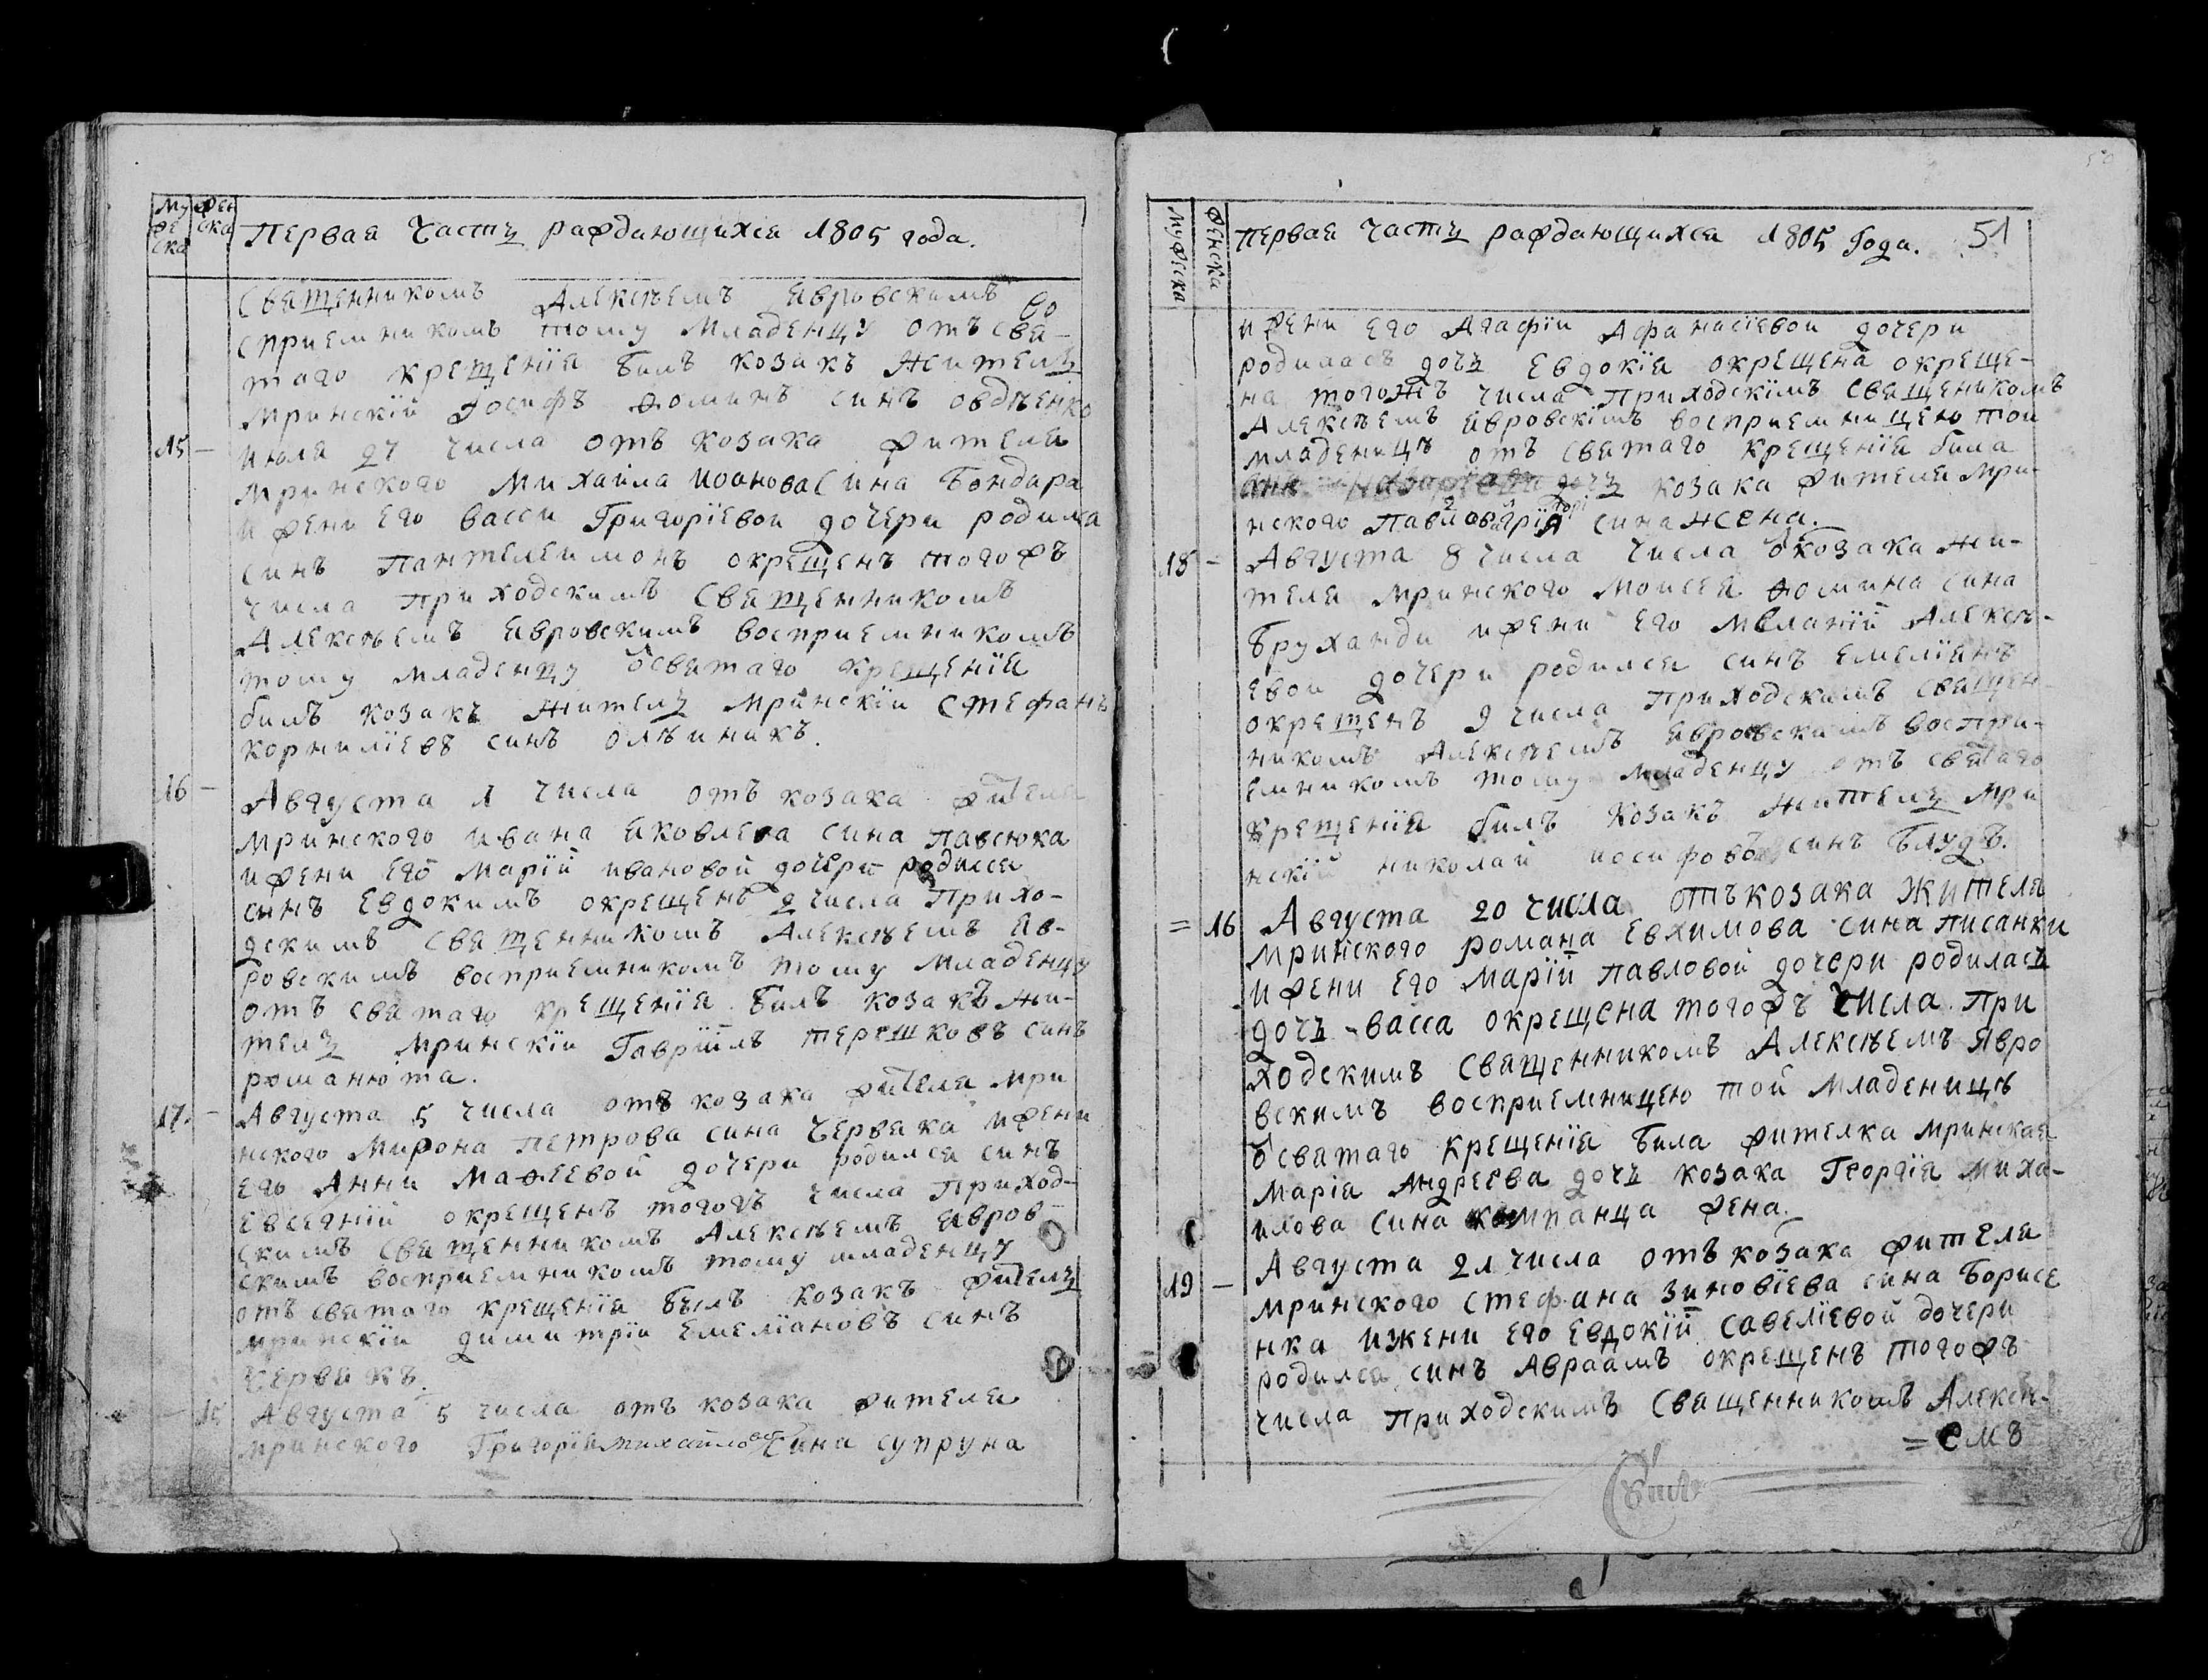 Му
же
ска
жен
ска
Первая Часть раждающихся 1805 года.
Священникомъ Алексѣемъ Явровскимъ во
сприемникомъ тому Младенцу отъ свя-
таго крещенїя билъ козакъ Житель
Мринскїй Іосифъ Ѳоминъ синъ овдѣенко
15 – Июля 27 числа отъ козака жителя
Мринского Михаила Иоанова Сина Бондара
и жени Его Васси Григорїевои дочери родился
синъ Пантелеимонъ окрещенъ тогожъ
числа приходскимъ Священникомъ
Алексѣемъ Явровскимъ восприемникомъ
тому младенцу ѿ святаго крещенїя
билъ козакъ житель Мринскїи Стефанъ
корнилїевъ синъ олѣиникъ.
16 – Августа 1 числа отъ козака жителя
Мринского Ивана Яковлева сина павсюка
и жени Его Марїй ивановой дочери родился
синъ Евдокимъ окрещенъ 2 числа Прихо-
дскимъ Священникомъ Алексѣемъ Яв-
ровскимъ восприемникомъ тому Младенцу
отъ святаго крещенїя билъ козакъ жи-
тель Мринскїи Гаврїилъ терешковъ синъ
романюта.
17. – Августа 5 числа отъ козака жителя Мри
нского Мирона Петрова сина Червяка и жени
Его Анни Маѳеевой дочери родился синъ
Евсегнїй окрещенъ тогожъ числа приход-
скимъ священникомъ Алексѣемъ Явров-
скимъ восприемникомъ тому младенцу
отъ святаго крещенїя былъ козакъ житель
мринскїи димитрїи Емелїановъ синъ
Червякъ.
– 15 Августа 5 числа отъ козака жителя
мринского Григорїя михайлова Сина супруна
Мужеска
женска
первая часть раждающихся 1805 Года. 51
и жени Его Агафїи Афанасїевои дочери
родилась дочь Евдокїя окрещена окреще-
на тогожъ числа приходскїмъ священикомъ
Алексѣемъ Явровскїмъ восприемницею тои
младеницѣ отъ святаго крещенїя била
дочь козака жителя Мри-
нского сина жена.
18 – Августа 8 числа числа ѿ козака жи-
теля мринского Моисея Ѳомина сина
Бруханди и жени Его Меланїй Алексѣ-
евои дочери родился синъ Емелїанъ
окрещенъ 9 числа приходскимъ священ-
никомъ Алексѣемъ Явровскимъ воспри-
емникомъ тому младенцу отъ святаго
крещенїя билъ козакъ житель Мри
нскїй николаи иосифовъ синъ Блудъ.
= 16 Августа 20 числа отъ козака жителя
мринского романа Евхимова сина писанки
и жени Его Марїй павловой дочери родилась
дочь Васса окрещена тогожъ числа При
ходскимъ Священникомъ Алексѣемъ Явро
вскимъ восприемницею той младеницѣ
ѿ святаго крещенїя била жителка мринская
Марїя Андреева дочь козака Георгїя Миха-
илова сина компанца жена.
19 – Августа 21 числа отъ козака жителя
мринского стефана зиновїева сина Борисе
нка и жени Его Евдокїй Савелїевой дочери
родился синъ Авраамъ окрещенъ тогожъ
числа приходскимъ Священникомъ Алексѣ-
= емъ